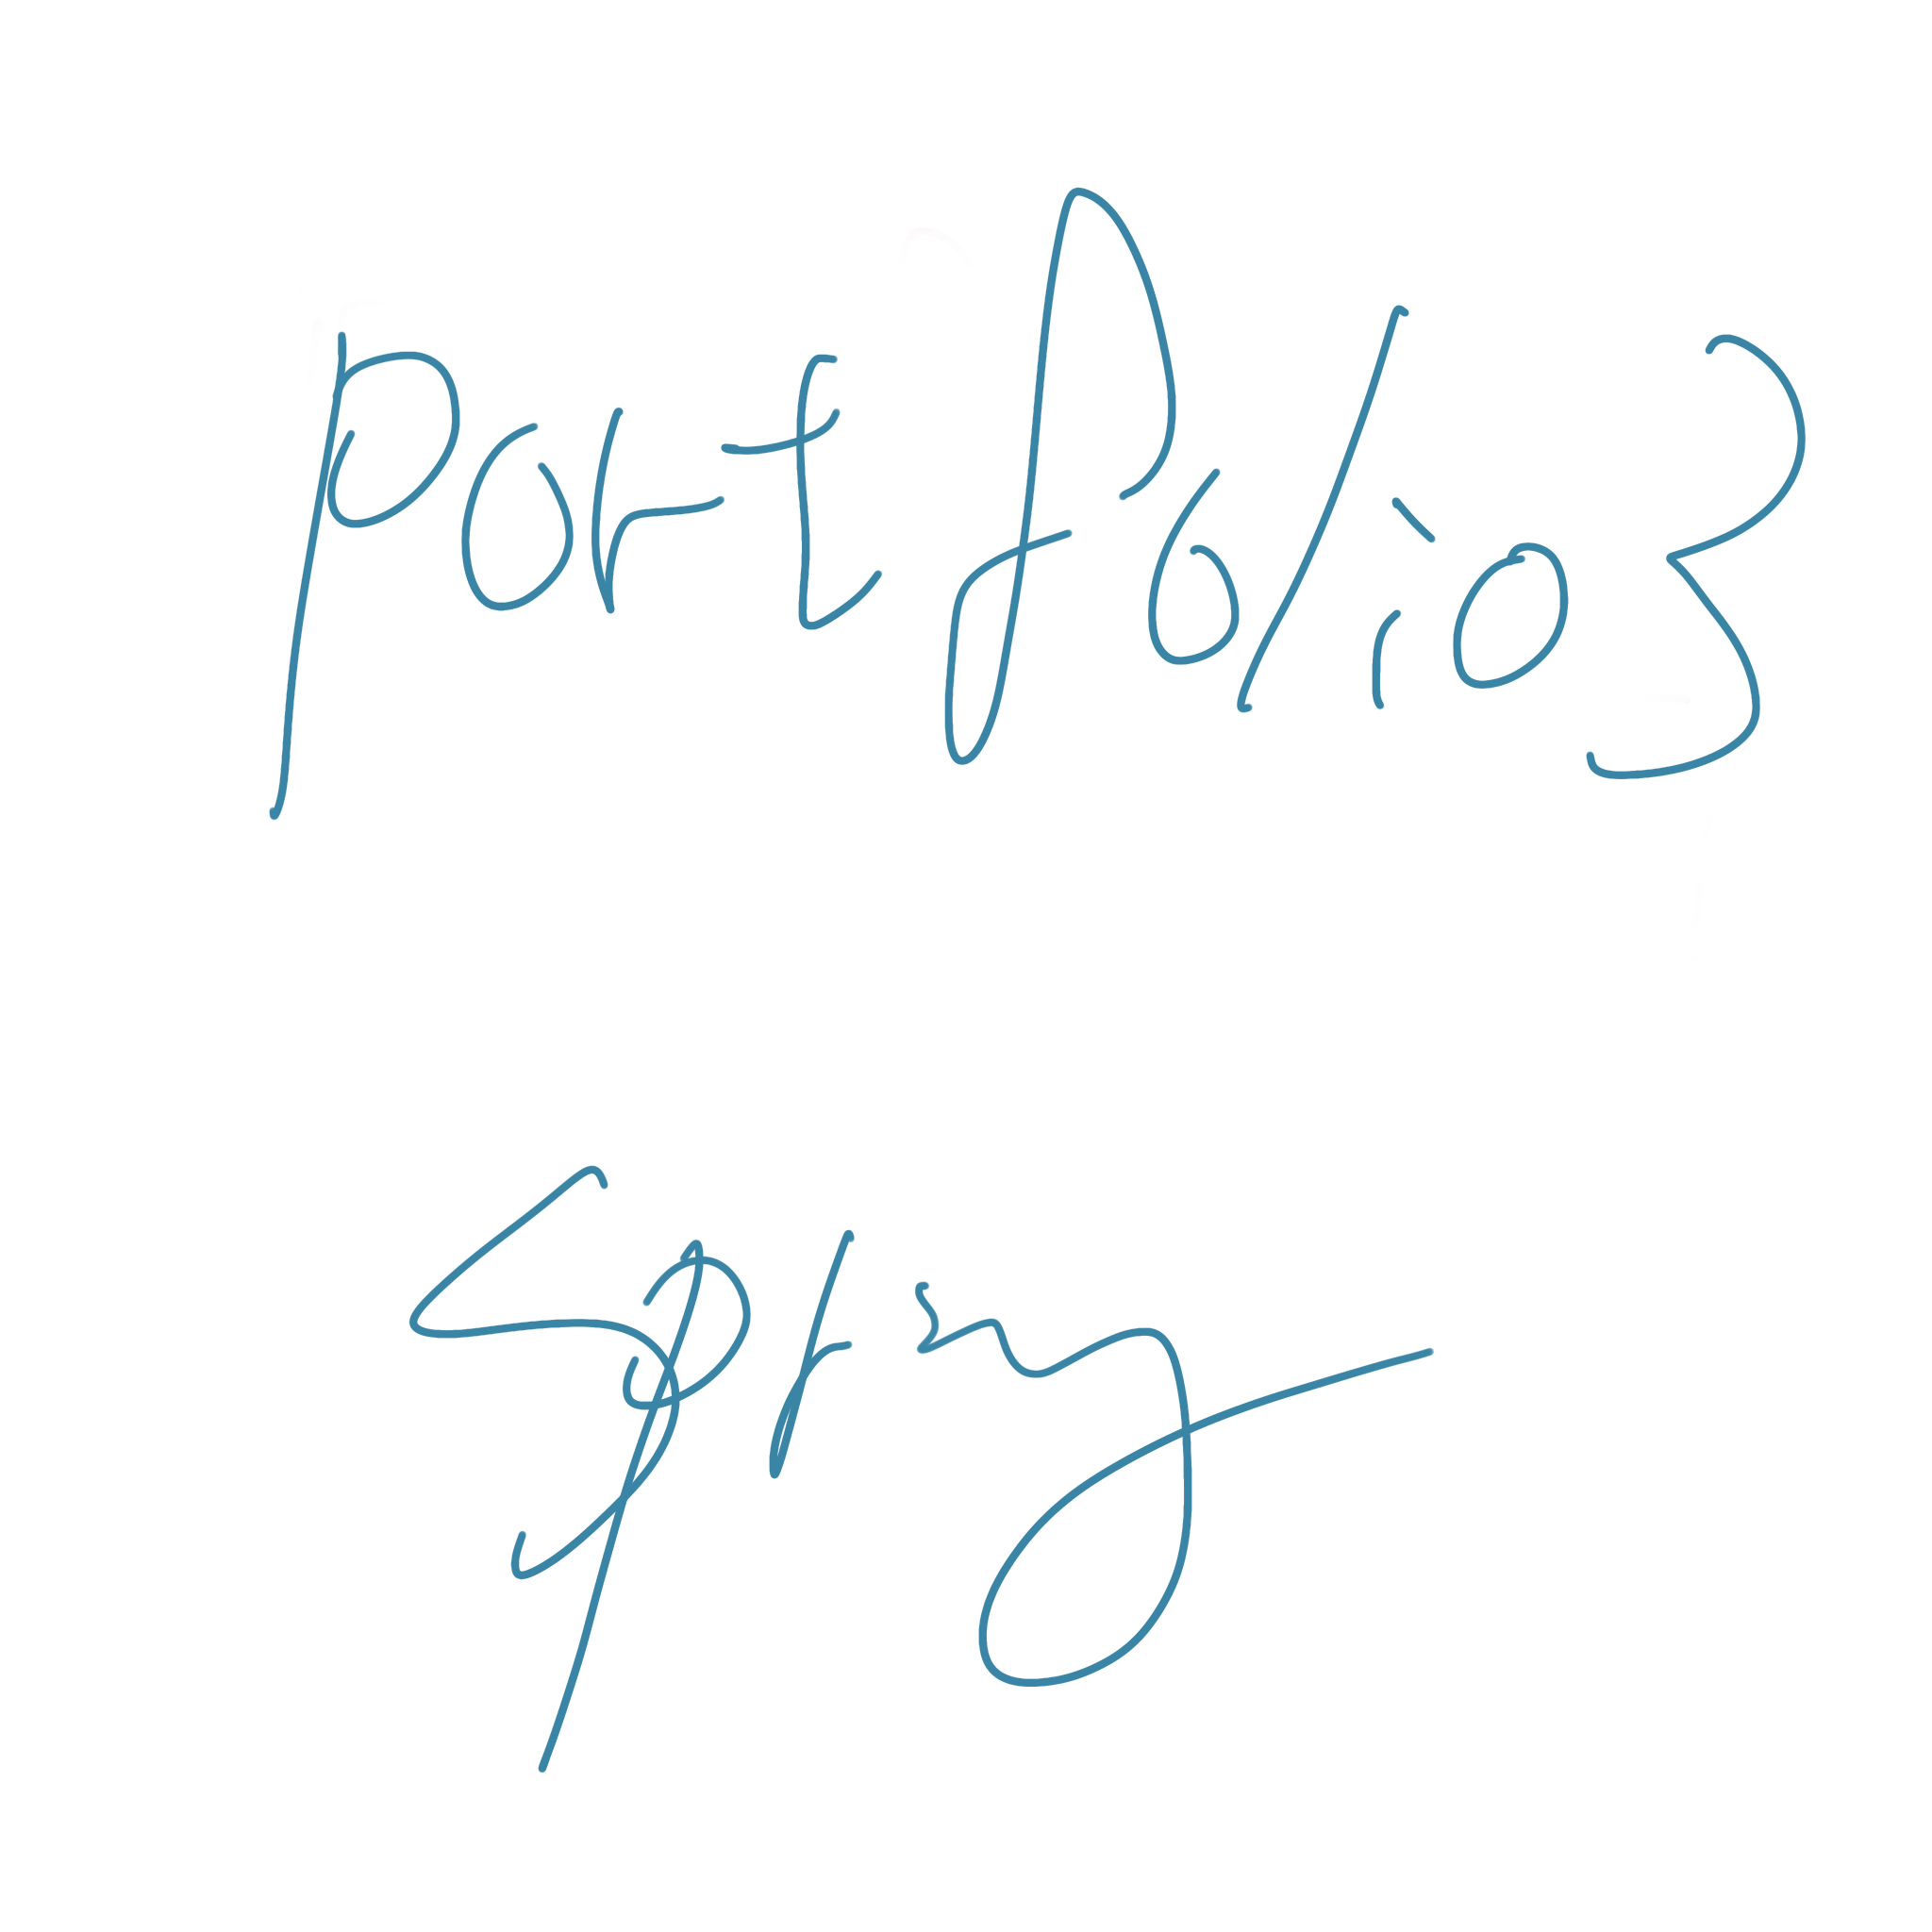 portfolio3
spring